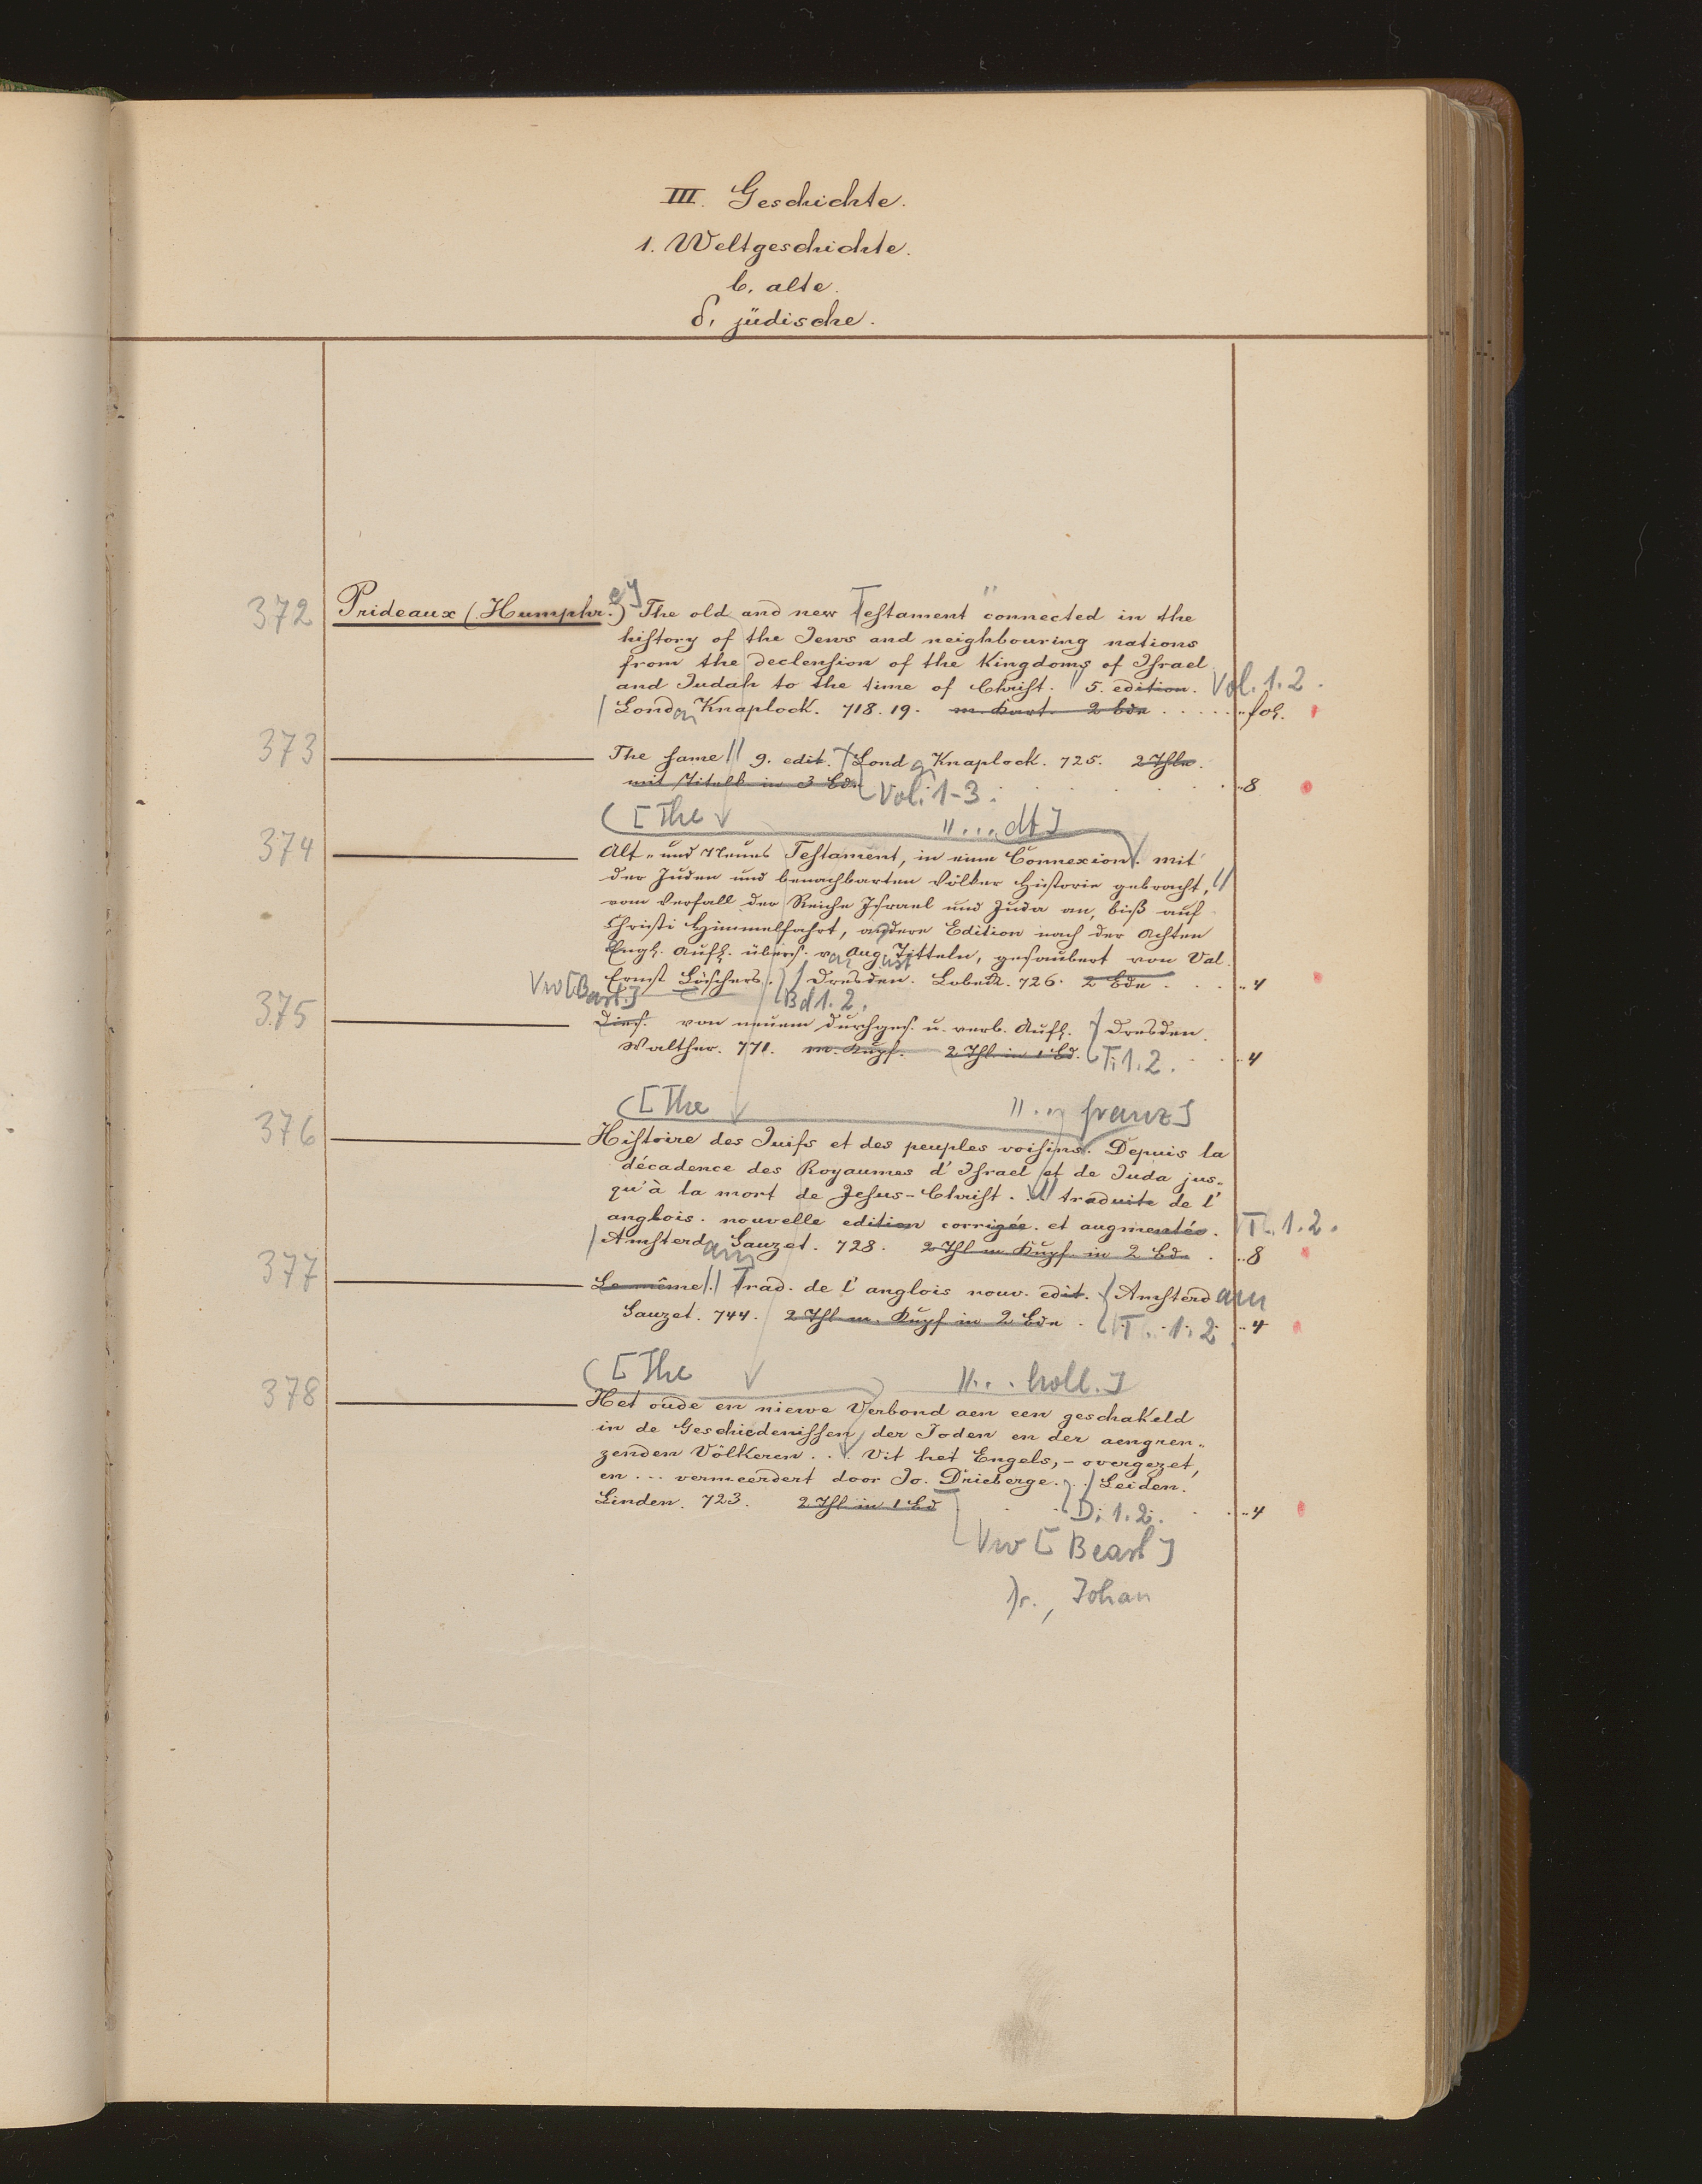 III. Geschichte.
1. Weltgeschichte.
b. alte.
δ. jüdische.
372 Prideaux (Humphr.) ey The old and new Testament connected in the
history of the Jews and neighbouring nations
from the declension of the Kingdoms of Israel
and Judah to the time of Christ. 5. edition. Vol. 1.2.
London Knaplock. 718.19. m. Kart. 2 Bde fol.
373 The same 9. edit. Londön Knaplock. 725. 2 Thle.
mit in 3 Bdn Vol. 1-3. 8
[The "...dt]
374 Alt- und Neues Testament, in eine Connexion mit
der Juden und benachbarten Völker Historie gebracht,
vom Verfall der Reiche Israel und Juda an, biß auf
Christi Himmelfahrt, andere Edition nach der Achten
Engl. Aufl. übers. von August Titteln, gesaubert von Val.
Ernst Löschers. Dresden. Lobeck. 726. 2 Bde 4
Vw [Bearb.] Bd 1.2.
375 Dies. von neuem durchges. u. verb. Aufl. Dresden.
Walther. 771. m. Kupf. 2 Thl. in 1 Bd. T. 1.2. 4
[The "... franz]
376 Histoire des Juifs et des peuples voisins. Depuis la
décadence des Royaumes d'Israel et de Juda jus-
qu'à la mort de Jesus-Christ. traduite de l'
anglois. nouvelle edition corrigée. et augmentée. T. 1.2.
Amsterdam Sauzet. 728. 2 Thl m Kupf. in 2 Bdn 8
377 Le même. Trad. de l'anglois nouv. edit. Amsterdam
Sauzet. 744. 2 Thl m. Kupf in 2 Bdn T. 1.2 4
[The "... holl.]
378 Het oude en niewe Verbond aen een geschakeld
in de Geschiedenissen der Joden en der aengren-
zenden Völkeren... Vit het Engels, - overgezet,
en... vermeerdert door Jo. Drieberge. Leiden.
Linden. 723. 2 Thl in 1 Bd D. 1.2. 4
Vw [Bearb]
Dr., Johan